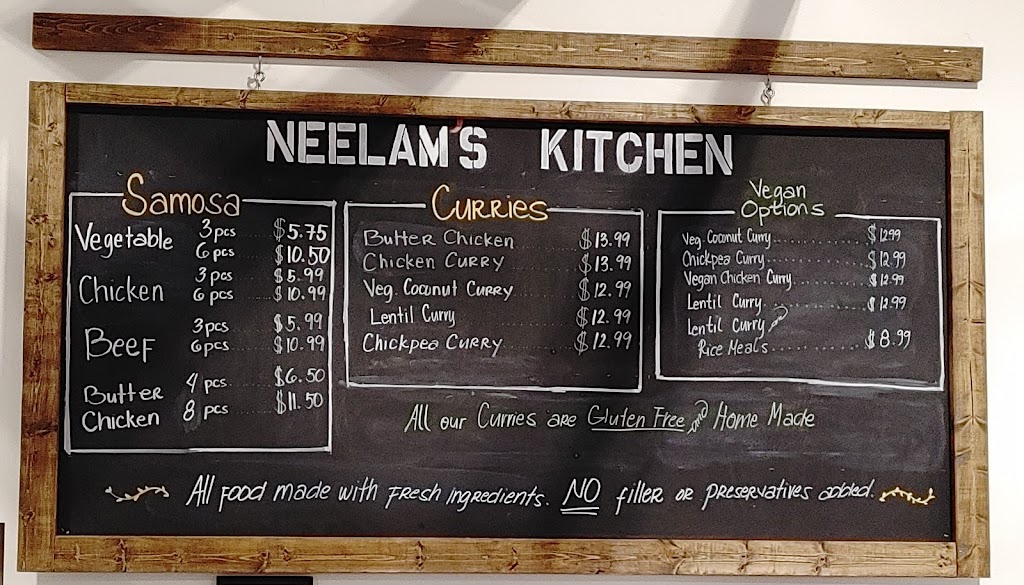 NEELAM'S KITCHEN
Samosa
Vegetable 3pcs $5.75
6pcs $10.50
Chicken 3pcs $5.99
6pcs $10.99
Beef 3pcs $5.99
6pcs $10.99
Butter Chicken 4 pcs $6.50
8 pcs $11.50
Curries
Butter Chicken $13.99
Chicken Curry $13.99
Veg. Coconut Curry $12.99
Lentil Curry $12.99
Chickpea Curry $12.99
Vegan
Options
Veg. Coconut Curry $12.99
Chickpea Curry $12.99
Vegan Chicken Curry $12.99
Lentil Curry $12.99
Lentil Curry
Rice Meals $8.99
All our Curries are Gluten Free and Home Made
All food made with fresh ingredients. NO filler or preservatives added.